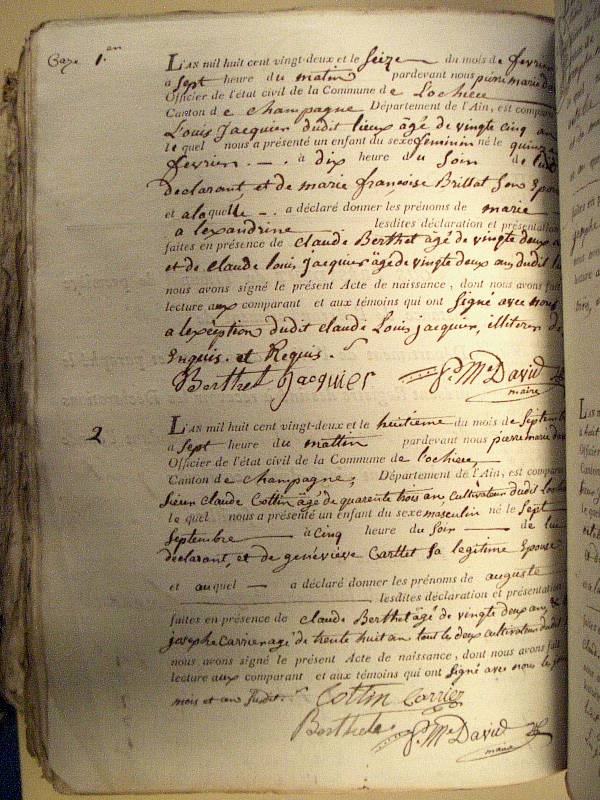 1.er
L'AN mil huit cent vingt-deux et le seize du mois de fevrier
a sept heure du matin pardevant nous pierre marie da
Officier de l'état civil de la Commune de Lochieu
Canton de Champagne Département de l'Ain, est compar
Louis Jacquier dudit lieux âgé de vingte cinq an
le quel nous a présenté un enfant du sexe feminin né le quinze
fevrier - . - à dix heure du Soir de lui
declarant et de marie françoise Brillat son Epouse
et a laquelle - . a déclaré donner les prénoms de marie
alexandrine lesdites déclaration et présentation
faites en présence de claude Berthet âgé de vingte deux a
et de claude louis jacquier âgé de vingte deux an dudit l
nous avons signé le présent Acte de naissance, dont nous avons fait
lecture aux comparant et aux témoins qui ont signé avec nous
a l'exception dudit claude Louis jacquier, illiteré de
Enquis. et Requis.
Berthet Jacquier P. Me David
maire
2
L'AN mil huit cent vingt-deux et le huitieme du mois de Septembre
a sept heure du mattin pardevant nous pierre marie da
Officier de l'état civil de la Commune de Lochieu
Canton de Champagne, Département de l'Ain, est compar
Sieur Claude Cottin âgé de quarente trois an cultivateur dudit Lochieu
le quel nous a présenté un enfant du sexe masculin né le Sept
Septembre à cinq heure du soir de lui
declarant, et de geneviève Carttet sa legitime Epouse
et auquel a déclaré donner les prénoms de auguste
lesdites déclaration et présentation
faites en présence de claude Berthet âgé de vingte deux an, &
josephe carrier agé de trente huit an tout le deux cultivateur dudit
nous avons signé le présent Acte de naissance, dont nous avons fait
lecture aux comparant et aux témoins qui ont signé avec nous le jour
mois et an Sudit.
Cottin Carrier
Berthet P. Me David
maire